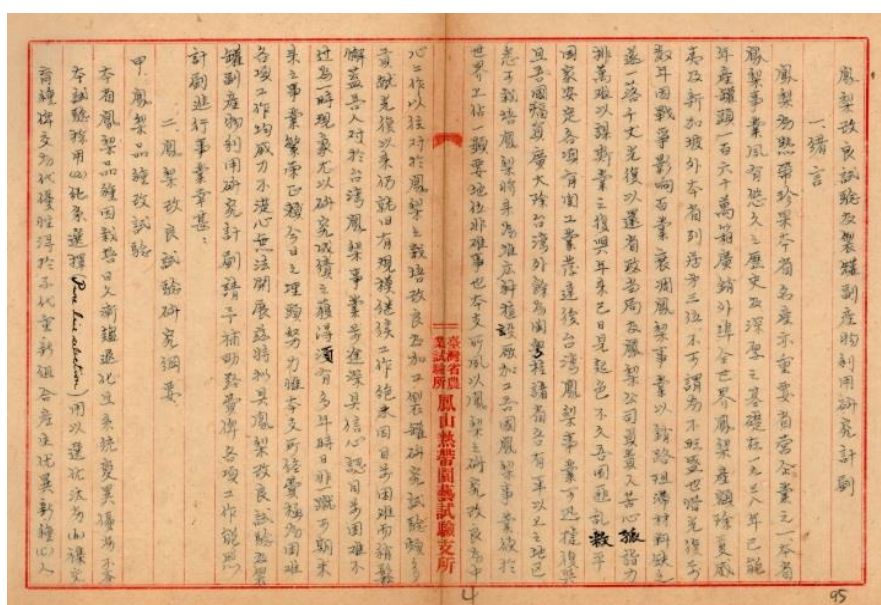 鳳梨改良試驗及製罐副產物利用研究計劃
一、緒言
鳳梨為熱帶珍果本省名產亦重要省營企業之一本省
鳳梨事業夙有悠久之歷史及深厚之基礎在一九三八年已能
年產罐頭一百六十萬箱廣銷外埠全世界鳳梨產額除夏威
夷及新加坡外本省列為第三位不可謂為不熙盛也惜光復前
數年因戰爭影响百業衰凋鳳梨事業以銷路阻滯材料缺乏
遂一落千丈光復以還省政當局及鳳梨公司員責人苦心孤詣力
排萬難以謀斯業之復興年來已日見起色不久吾國匪乱救平
國家安定各項有関工業發達後台湾鳳梨事業可恐捷復興
且吾國幅員廣大除台湾外餘為閩粵桂諸省各有華以上之地區
悉可栽培鳳梨將來為推広新植設廠加工吾國鳳梨事業欲於
世界上佔一類要地位非难事也本支所夙以鳳梨之研究改良為中
臺灣省農業試驗所 鳳山熱帶園藝試驗支所
心工作以往对於鳳梨之栽培改良及加工製罐研究試驗頗多
貢献光復以來仍就旧有規模继续工作絕未因目前困难而稍鬆
懈蓋吾人对於台湾鳳梨事業前途深具信心認目前困难不
过為一時現象尤以研究成績之獲得須有多年時日非一蹴可期未
來之事業繁榮正賴今日之埋頭努力惟本支所経費極為困难
各項工作均感力不從心無法開展茲特拟具鳳梨改良試驗及製
罐副產物利用研究計劃請予補助経費俾各項工作能照
計劃進行事業幸甚：
二、鳳梨改良試驗研究綱要
甲、鳳梨品種改試驗
本省鳳梨品種因栽培日久漸趨退化至系統變異優劣不齊
本試驗採用(a)純系選擇(Pure line selection)用以選优汰劣(b)雜交
育種俾交为代優性得於子代重新組合產生优異新種(c)人
4
95